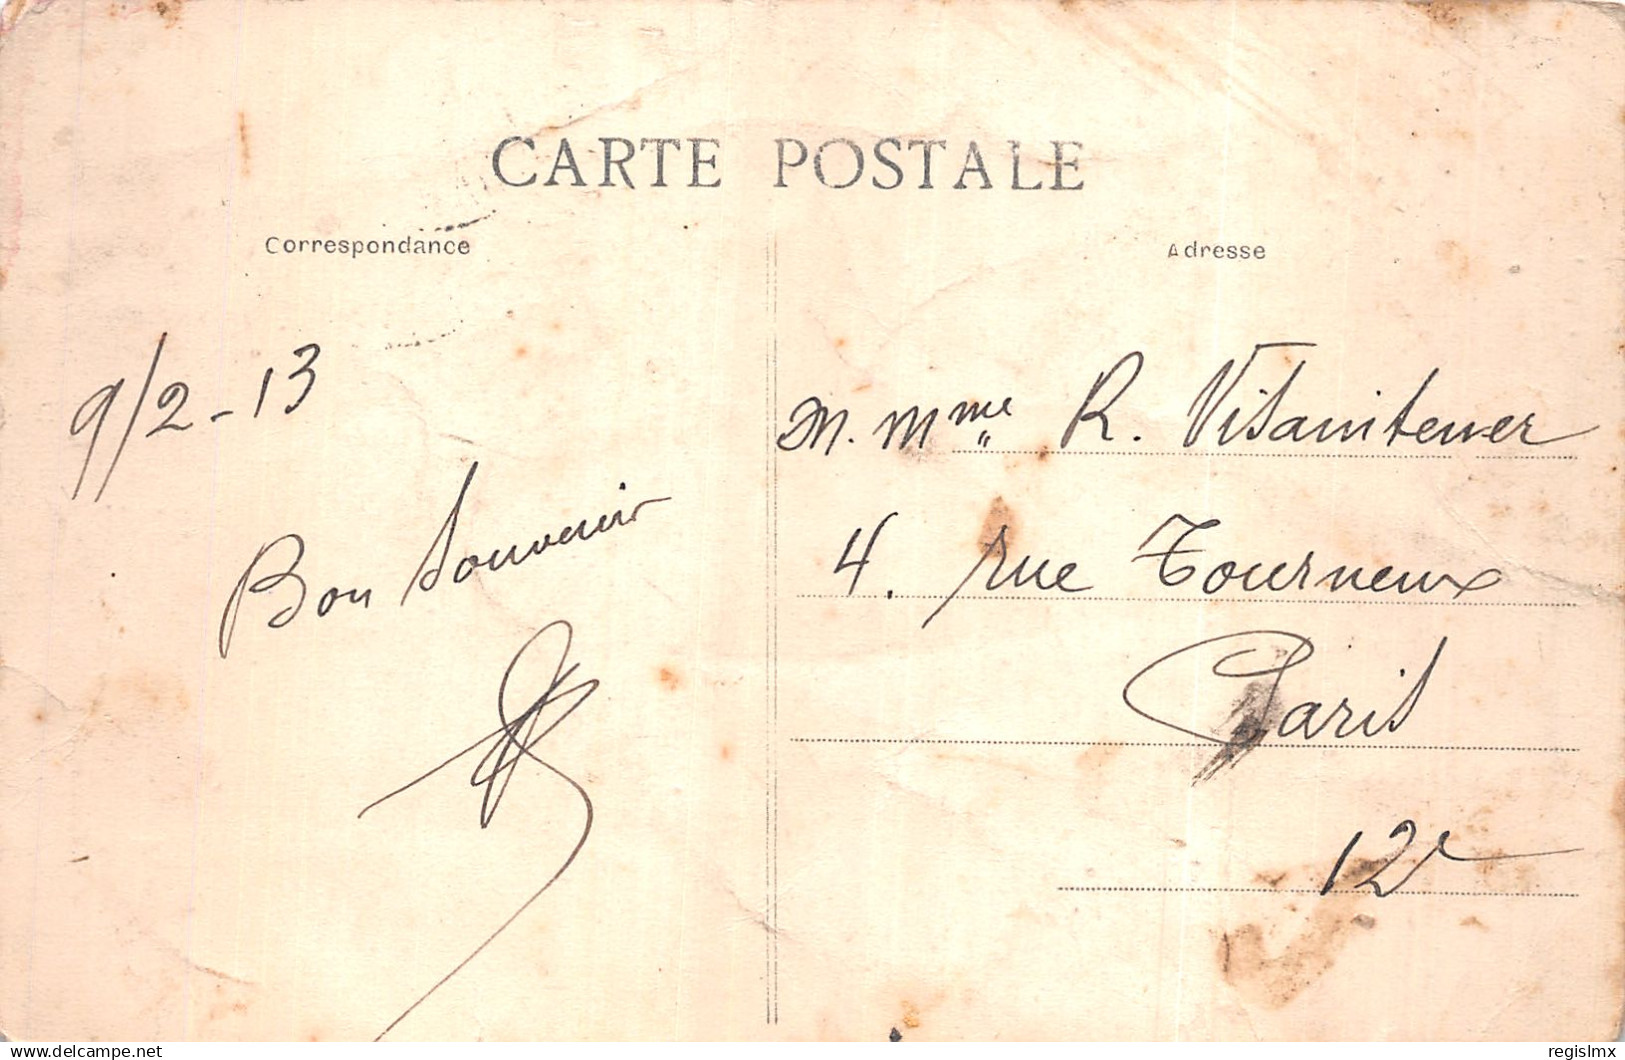 CARTE POSTALE
Correspondance
Adresse
9/2-13
Bon souvenir
M. Mme R.
4. rue Tourneux
Paris
12e
delcampe.net
regislmx